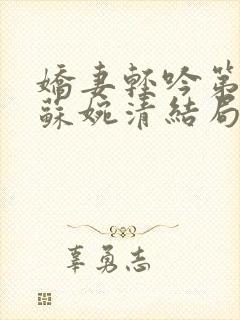 嬌妻輕吟第
蘇婉清結局
辜勇志